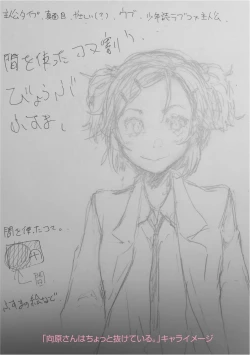 主人公タイプ、真面目、やさしい(?)、ウブ、少年誌ラブコメ主人公、
間を使ったコマ割り、
びょうぶ
ふすま、
間を使ったコマ、
間
ふすまの絵など
「向原さんはちょっと抜けている。」キャライメージ